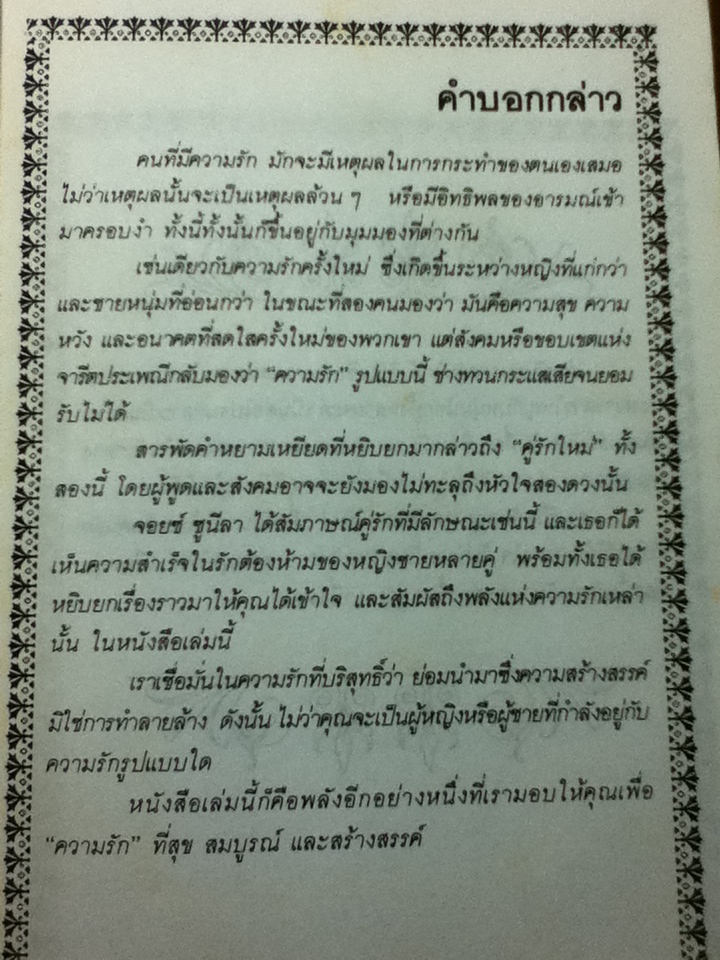 คำบอกกล่าว
คนที่มีความรัก มักจะมีเหตุผลในการกระทำของตนเองเสมอ
ไม่ว่าเหตุผลนั้นจะเป็นเหตุผลล้วน ๆ หรือมีอิทธิพลของอารมณ์เข้า
มาครอบงำ ทั้งนี้ทั้งนั้นก็ขึ้นอยู่กับมุมมองที่ต่างกัน
เช่นเดียวกับความรักครั้งใหม่ ซึ่งเกิดขึ้นระหว่างหญิงที่แก่กว่า
และชายหนุ่มที่อ่อนกว่า ในขณะที่สองคนมองว่า มันคือความสุข ความ
หวัง และอนาคตที่สดใสครั้งใหม่ของพวกเขา แต่สังคมหรือขอบเขตแห่ง
จารีตประเพณีกลับมองว่า “ความรัก” รูปแบบนี้ ช่างทวนกระแสเสียจนยอม
รับไม่ได้
สารพัดคำหยามเหยียดที่หยิบยกมากล่าวถึง “คู่รักใหม่” ทั้ง
สองนี้ โดยผู้พูดและสังคมอาจจะยังมองไม่ทะลุถึงหัวใจสองดวงนั้น
จอยซ์ ซูนีลา ได้สัมภาษณ์คู่รักที่มีลักษณะเช่นนี้ และเธอก็ได้
เห็นความสำเร็จในรักต้องห้ามของหญิงชายหลายคู่ พร้อมทั้งเธอได้
หยิบยกเรื่องราวมาให้คุณได้เข้าใจ และสัมผัสถึงพลังแห่งความรักเหล่า
นั้น ในหนังสือเล่มนี้
เราเชื่อมั่นในความรักที่บริสุทธิ์ว่า ย่อมนำมาซึ่งความสร้างสรรค์
มิใช่การทำลายล้าง ดังนั้น ไม่ว่าคุณจะเป็นผู้หญิงหรือผู้ชายที่กำลังอยู่กับ
ความรักรูปแบบใด
หนังสือเล่มนี้ก็คือพลังอีกอย่างหนึ่งที่เรามอบให้คุณเพื่อ
“ความรัก” ที่สุข สมบูรณ์ และสร้างสรรค์